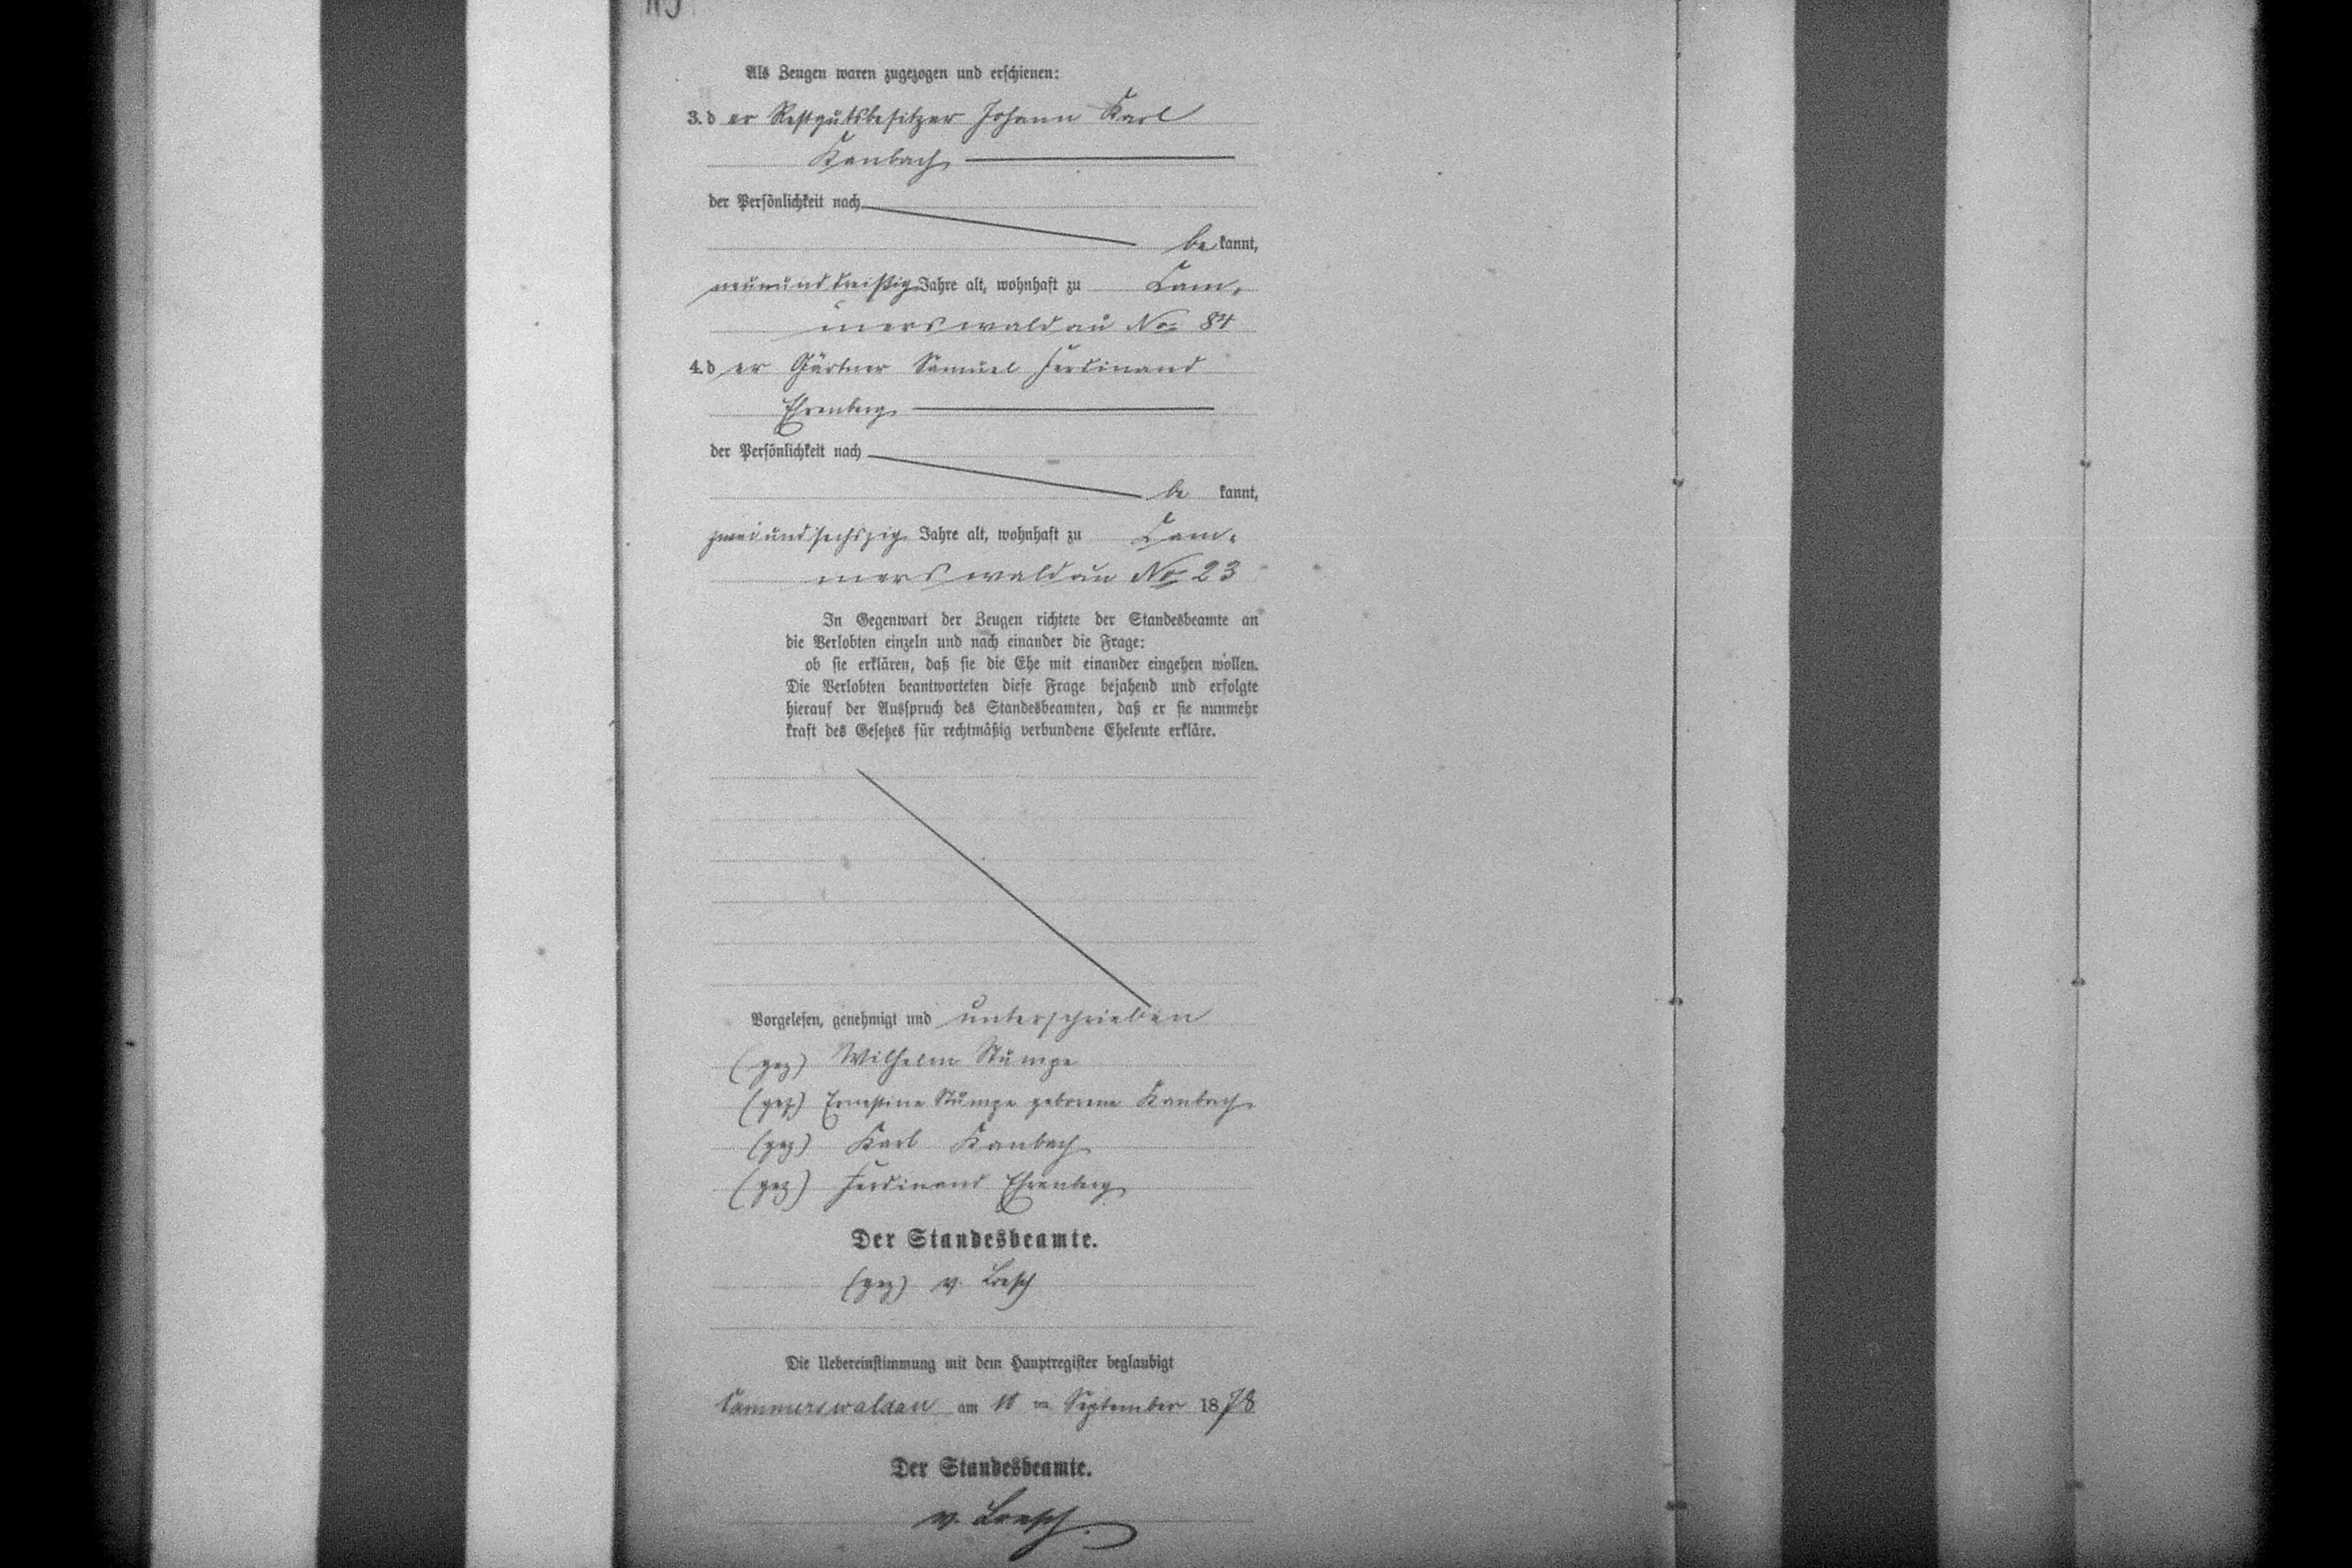 Als Zeugen waren zugezogen und erschienen:
3. d er Restgutsbesitzer Johann Karl
Kanbach
der Persönlichkeit nach
be kannt,
neununddreißig Jahre alt, wohnhaft zu Cam-
merswaldau No 84
4. d er Gärtner Samuel Ferdinand
Ehrenberg
der Persönlichkeit nach
be kannt,
zweiundsechszig Jahre alt, wohnhaft zu Cam-
merswaldau No 23
In Gegenwart der Zeugen richtete der Standesbeamte an
die Verlobten einzeln und nach einander die Frage:
ob sie erklären, daß sie die Ehe mit einander eingehen wollen.
Die Verlobten beantworteten diese Frage bejahend und erfolgte
hierauf der Ausspruch des Standesbeamten, daß er sie nunmehr
kraft des Gesetzes für rechtmäßig verbundene Eheleute erkläre.
Vorgelesen, genehmigt und unterschrieben
(gez) Wilhelm Stumpe
(gez) Ernestine Stumpe geborene Kanbach
(gez) Karl Kanbach
(gez) Ferdinand Ehrenberg
Der Standesbeamte.
(gez) v. Loesch
Die Uebereinstimmung mit dem Hauptregister beglaubigt
Cammerswaldau am ten September 1878
Der Standesbeamte.
v. Loesch.